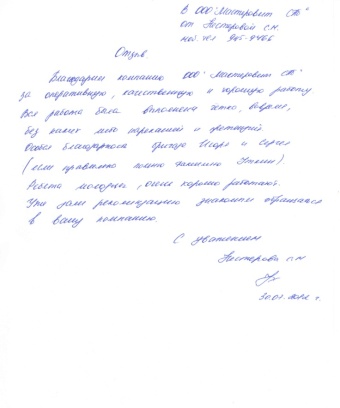 В ООО "Мастеровит СК"
от Нестеровой С.Н.
Отзыв
Благодарим компанию ООО "Мастеровит СК"
за оперативную, качественную и хорошую работу
Вся работа была выполнена четко, вовремя,
без каких либо нареканий и претензий
Особая благодарность бригаде Игоря и Сергея
(если правильно помню фамилию
Ребята молодцы, очень хорошо работают.
Уже дали рекомендацию знакомым обращаться
в вашу компанию.
С уважением
Нестерова С.Н